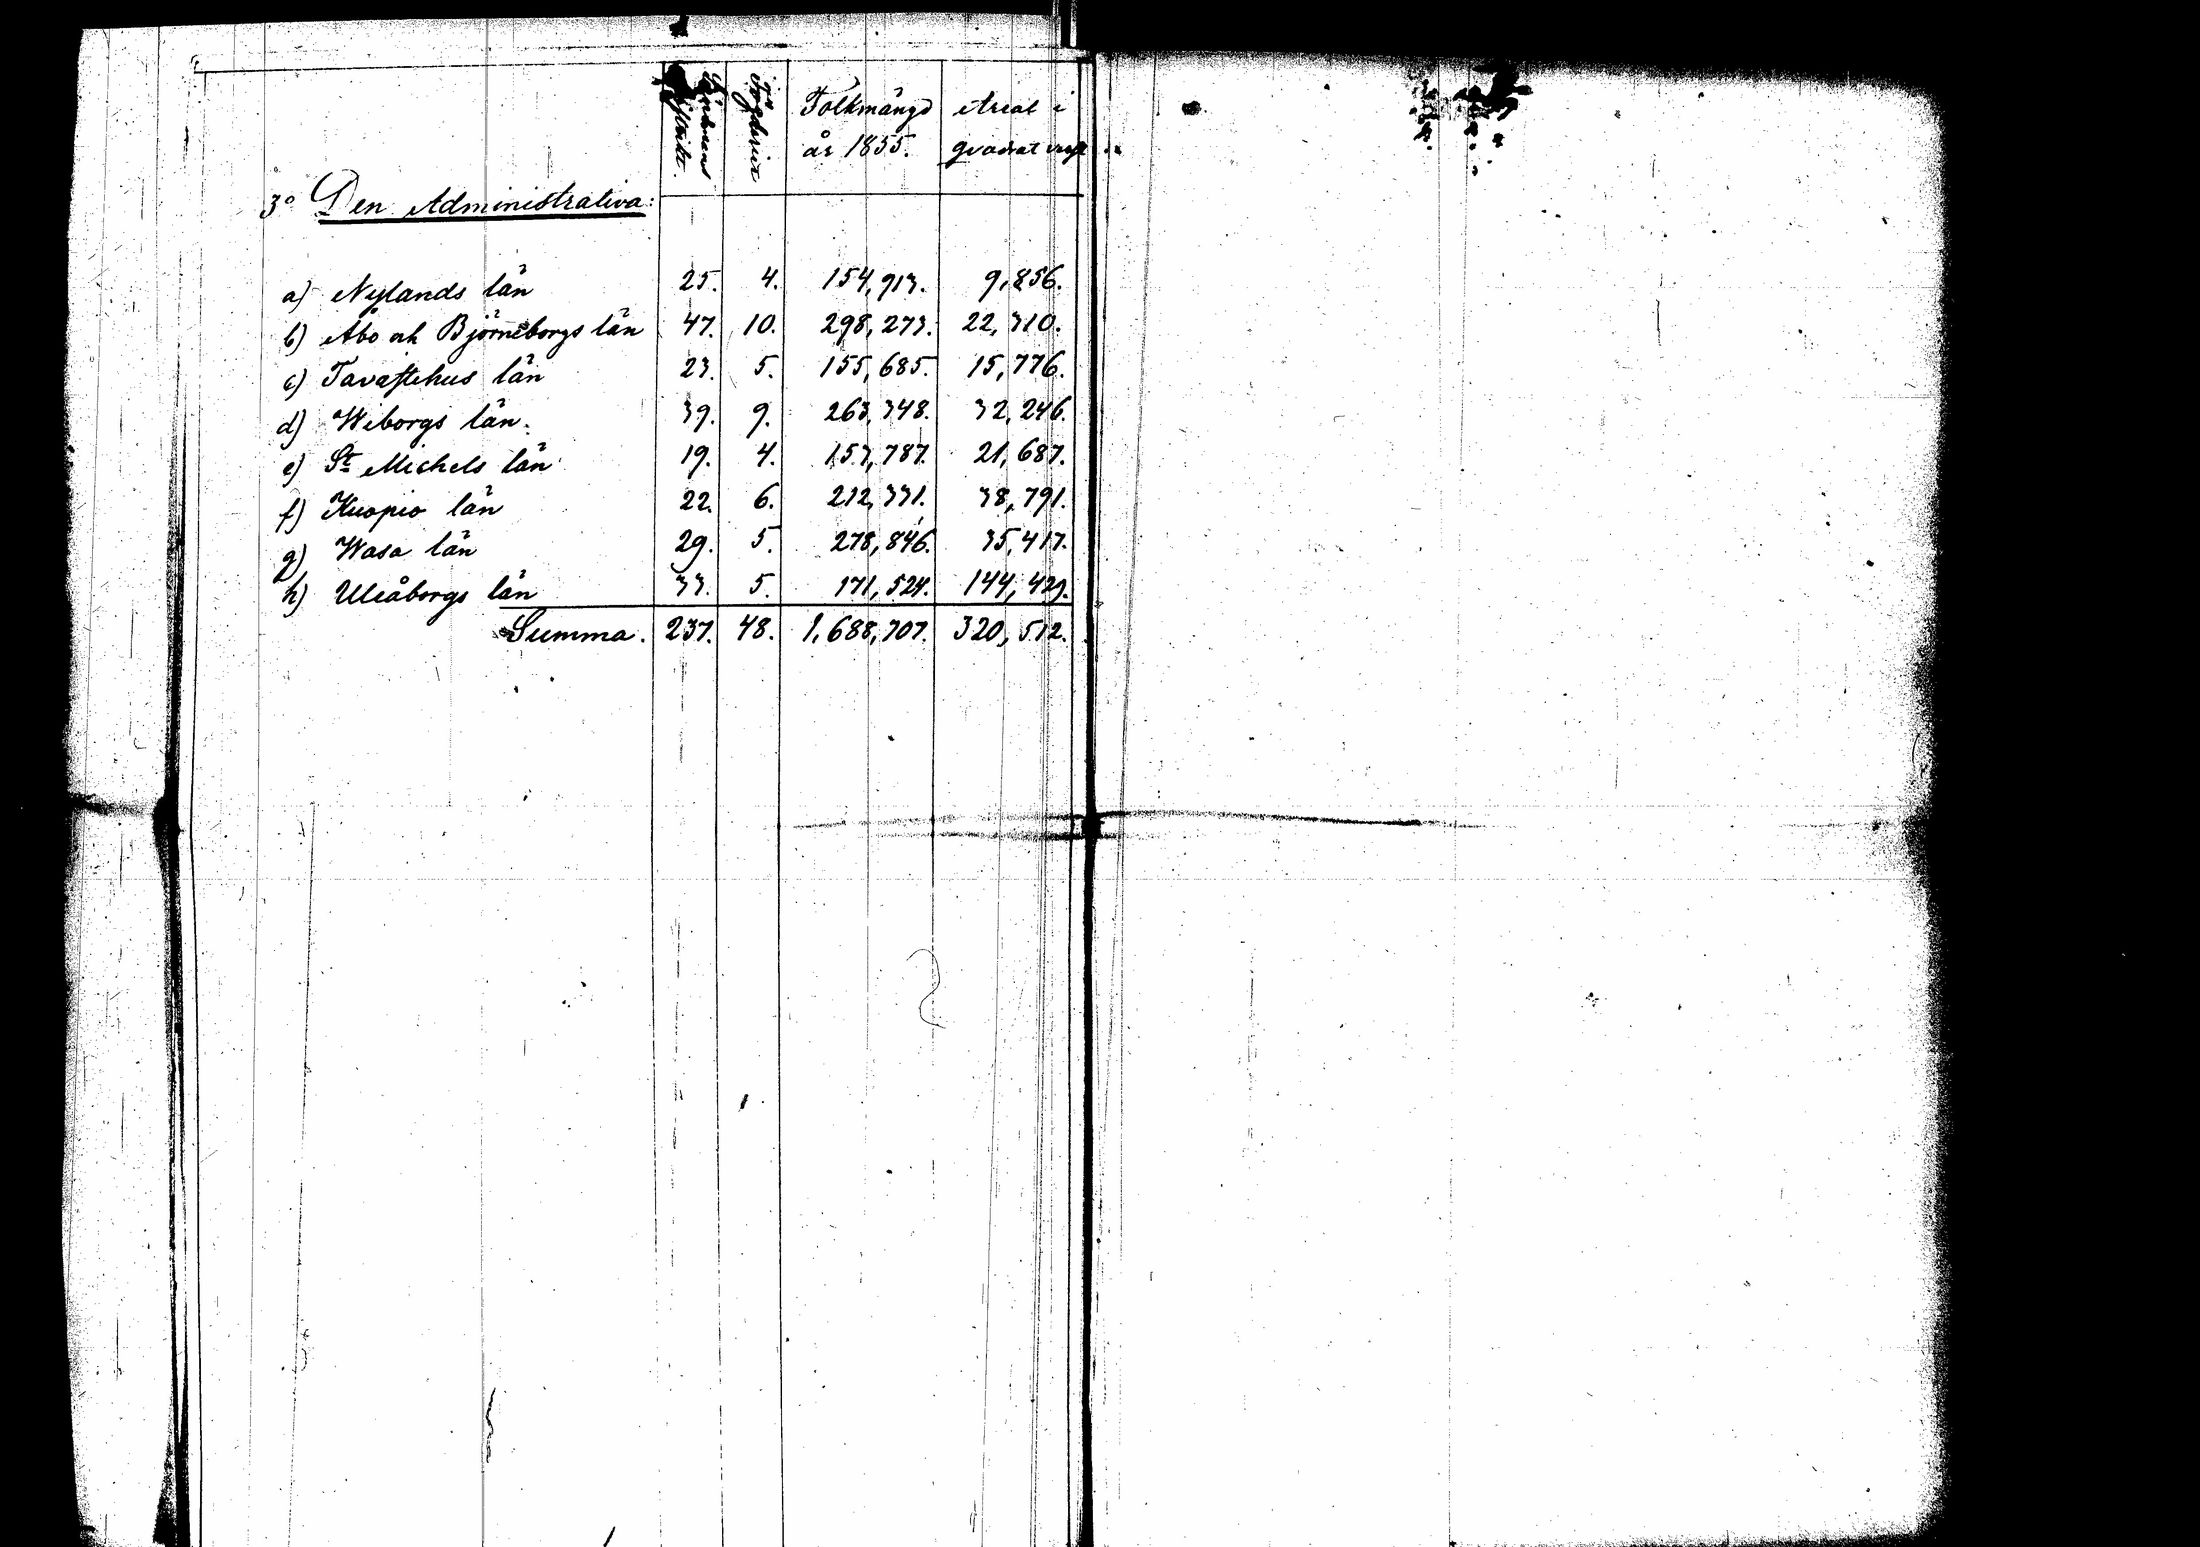 Länsmans
distrikt.
Fögderier
Folkmängd
år 1855.
Areal i
qvadrat verst
3° Den Administrativa:
a) Nylands län 25. 4. 154,913. 9,856.
b) Åbo och Björneborgs län 47. 10. 298,273. 22,310.
c) Tavastehus län 23. 5. 155,685. 15,776.
d) Wiborgs län. 39. 9. 263,348. 32,246.
e) St Michels län 19. 4. 153,787. 21,687.
f) Kuopio län 22. 6. 212,331. 38,791.
g) Wasa län 29. 5. 278,846. 35,417.
h) Uleåborgs län 33. 5. 171,524. 144,429.
Summa. 237. 48. 1,688,707. 320,512.